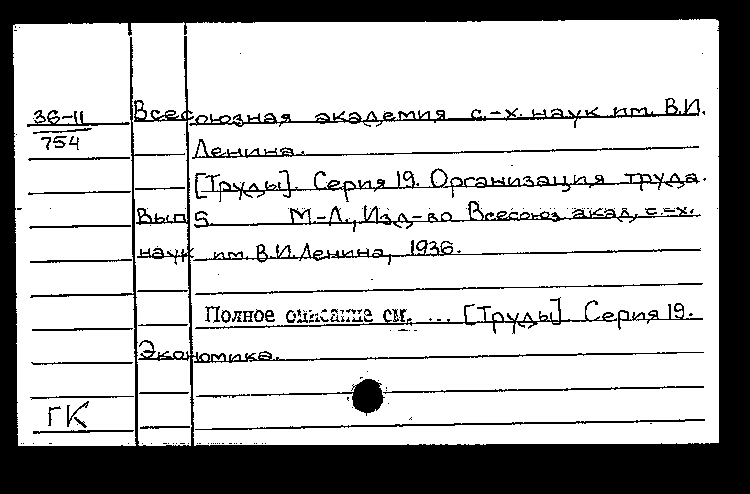 36-11
754
Всесоюзная академия с.-х. наук им. В.И.
Ленина.
[Труды]. Серия 19. Организация труда.
Вып 5. М.-Л., Изд-во Всесоюз. акад. с.-х.
наук им. В.И. Ленина, 1936.
Полное описание см. ... [Труды]. Серия 19.
Экономика.
ГК